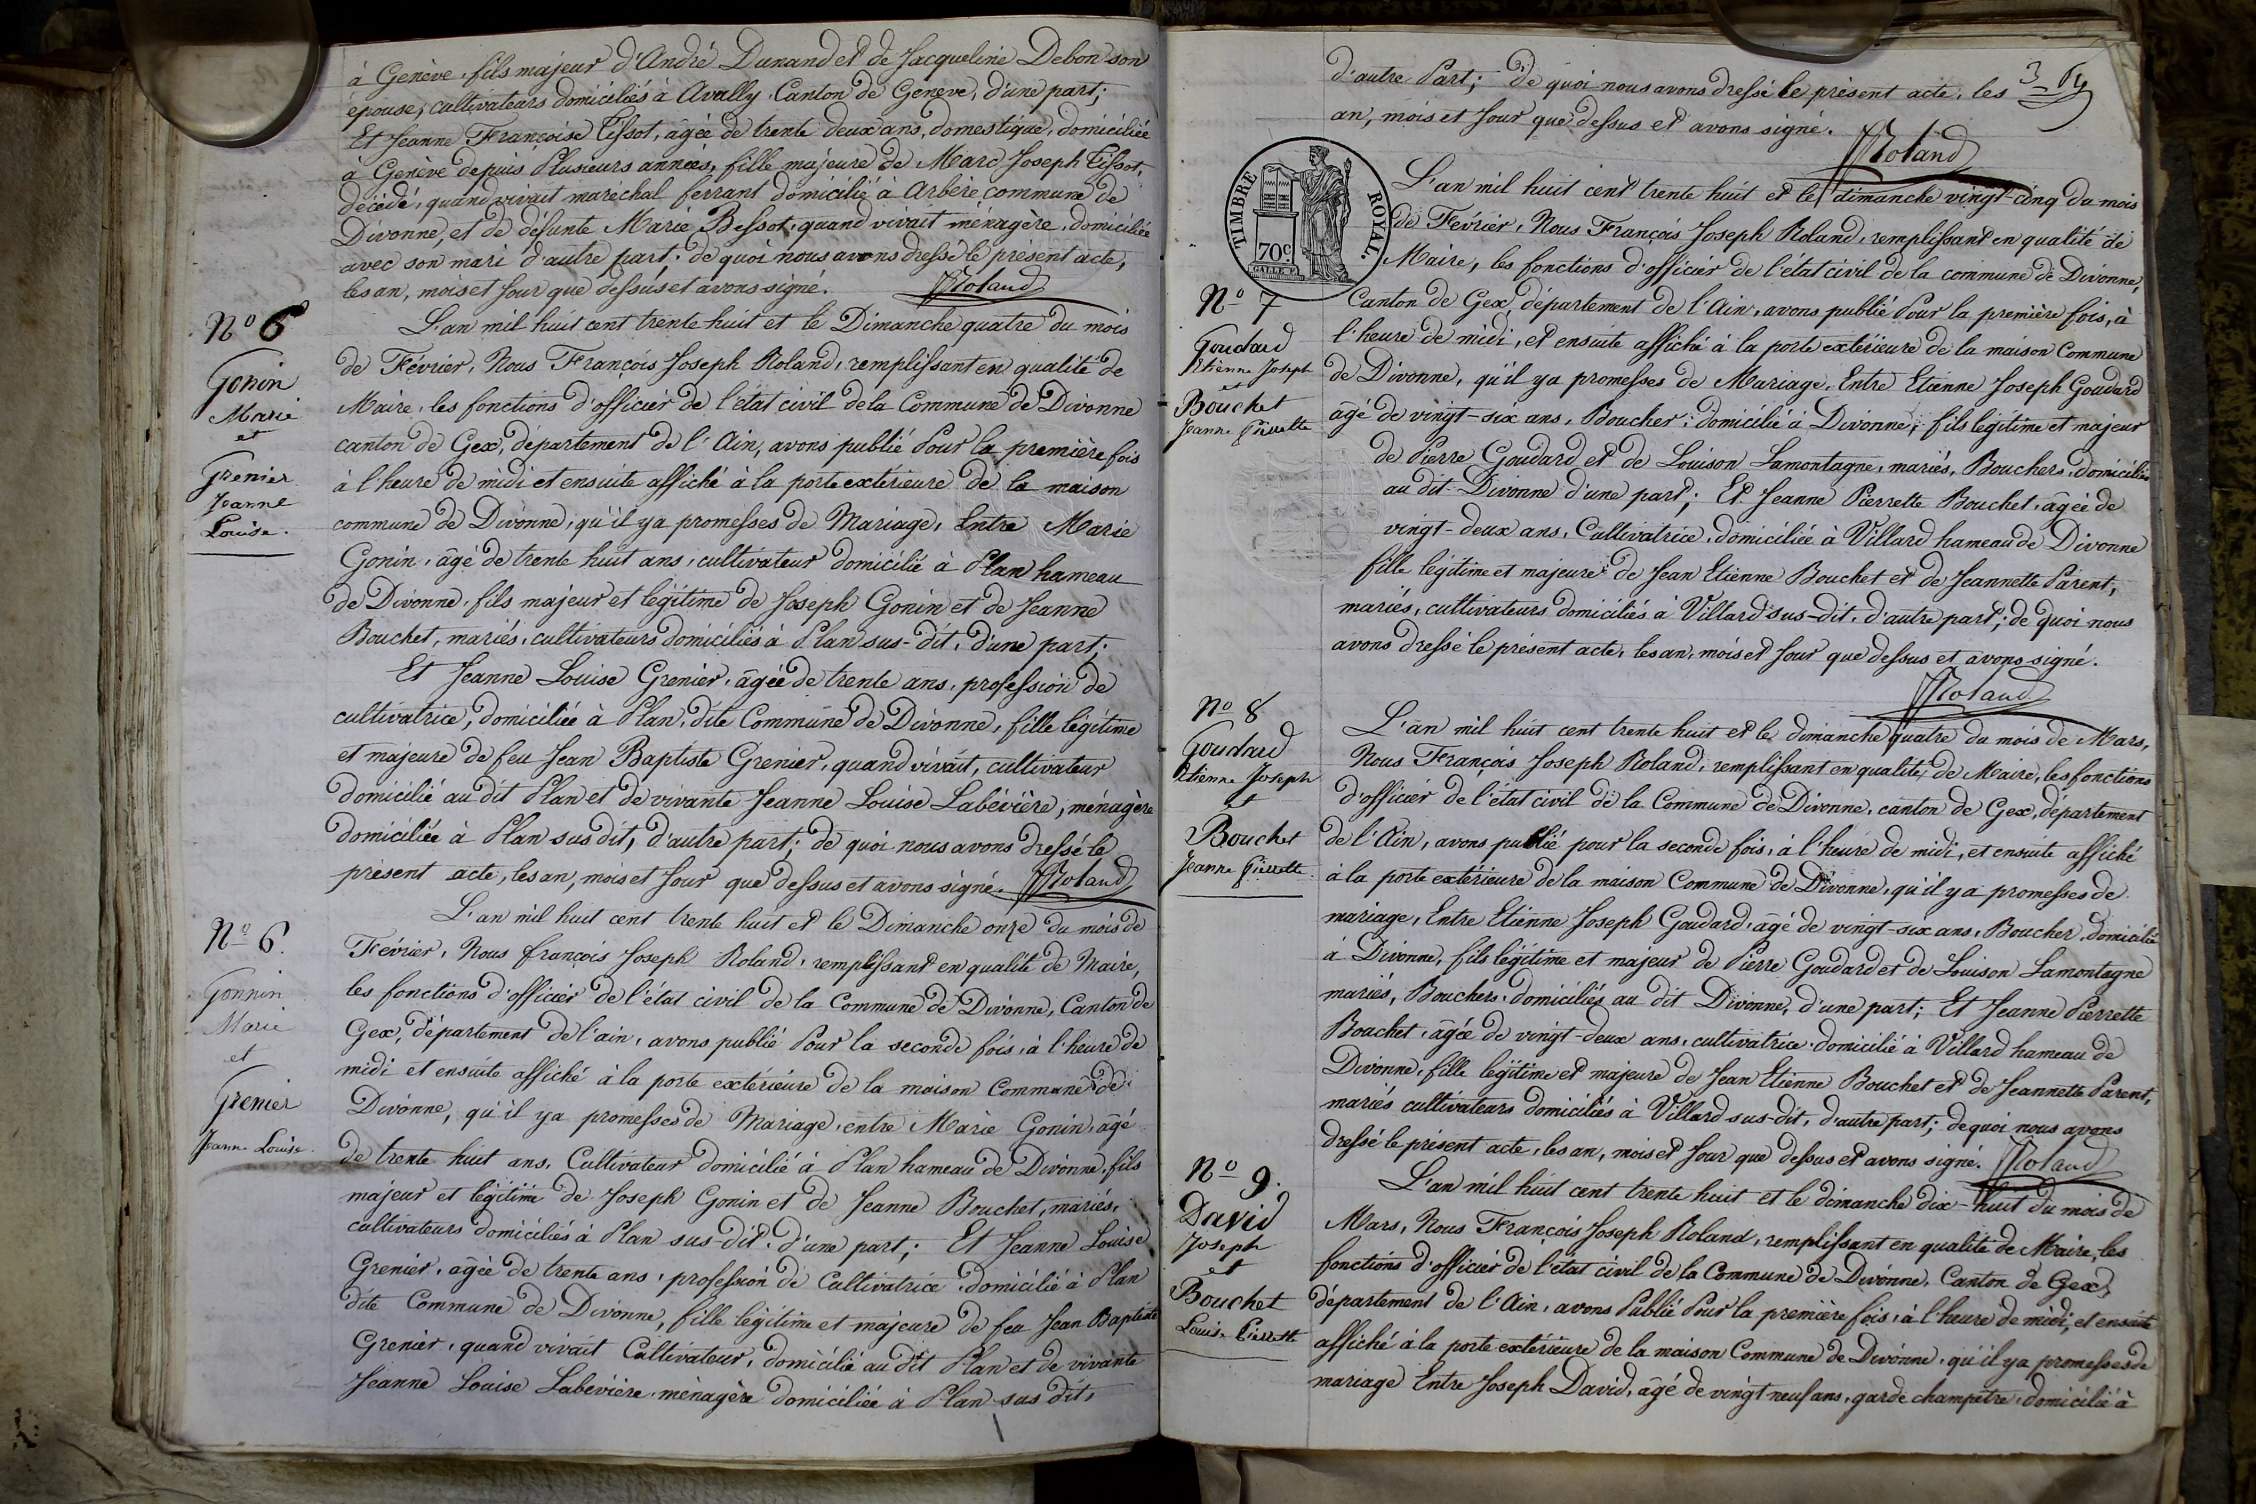 à Genève, fils majeur d'André Dunand et de Jacqueline Debon son
épouse, cultivateurs domiciliés à Avully Canton de Genève, d'une part;
Et Jeanne Françoise Tissot, âgée de trente deux ans, domestique, domiciliée
à Genève depuis Plusieurs années, fille majeure de Marc Joseph Tissot,
décédé, quand vivait maréchal ferrant domicilié à Arbère, commune de
Divonne, et de défunte Marie Bessot, quand vivait ménagère, domiciliée
avec son mari d'autre part; de quoi nous avons dressé le présent acte,
les an, mois et Jour que dessus et avons signé. Roland
N° 6
Gonin
Marie
et
Grenier
Jeanne
Louise.
L'an mil huit cent trente huit et le Dimanche quatre du mois
de Février, Nous François Joseph Roland, remplissant en qualité de
Maire, les fonctions d'officier de l'état civil de la Commune de Divonne
canton de Gex, département de l'Ain, avons publié Pour la première fois
à l'heure de midi et ensuite affiché à la porte extérieure de la maison
commune de Divonne, qu'il y a promesses de Mariage, Entre Marie
Gonin, âgé de trente huit ans, cultivateur domicilié à Plan hameau
de Divonne, fils majeur et légitime de Joseph Gonin et de Jeanne
Bouchet, mariés, cultivateurs domiciliés à Plan sus-dit, d'une part;
Et Jeanne Louise Grenier, âgée de trente ans, profession de
cultivatrice, domiciliée à Plan, dite Commune de Divonne, fille légitime
et majeure de feu Jean Baptiste Grenier, quand vivait, cultivateur
domicilié au dit Plan et de vivante Jeanne Louise Labévière, ménagère
domiciliée à Plan sus dit, d'autre part; de quoi nous avons dressé le
présent acte, les an, mois et Jour que dessus et avons signé. Roland
N° 6.
Gonnin
Marie
et
Grenier
Jeanne Louise.
L'an mil huit cent trente huit et le Dimanche onze du mois de
Février, Nous françois Joseph Roland, remplissant en qualité de Maire,
les fonctions d'officier de l'état civil de la Commune de Divonne, Canton de
Gex, département de l'ain, avons publié Pour la seconde fois, à l'heure de
midi et ensuite affiché à la porte extérieure de la maison Commune de
Divonne, qu'il y a promesses de Mariage, entre Marie Gonin, âgé
de trente huit ans, Cultivateur domicilié à Plan hameau de Divonne, fils
majeur et légitime de Joseph Gonin et de Jeanne Bouchet, mariés,
cultivateurs domiciliés à Plan sus-dit, d'une part; Et Jeanne Louise
Grenier, âgée de trente ans, profession de Cultivatrice, domicilié à Plan
dite Commune de Divonne, fille légitime et majeure de feu Jean Baptiste
Grenier, quand vivait Cultivateur, domicilié au dit Plan et de vivante
Jeanne Louise Labévière, ménagère domiciliée à Plan sus dit,
3
d'autre Part; de quoi nous avons dressé le présent acte, les
an, mois et Jour que dessus et avons signé.
Roland
TIMBRE ROYAL.
70c.
N° 7
Goudard
Etienne Joseph
et
Bouchet
Jeanne Pierrette
L'an mil huit cent trente huit et le dimanche vingt-cinq du mois
de Février, Nous François Joseph Roland, remplissant en qualité de
Maire, les fonctions d'officier de l'état civil de la commune de Divonne,
Canton de Gex, département de l'Ain, avons publié Pour la première fois, à
l'heure de midi, et ensuite affiché à la porte extérieure de la maison Commune
de Divonne, qu'il y a promesses de Mariage, Entre Etienne Joseph Goudard
âgé de vingt-six ans, Boucher, domicilié à Divonne, fils légitime et majeur
de Pierre Goudard et de Louison Lamontagne, mariés, Bouchers, domiciliés
au dit Divonne d'une part; Et Jeanne Pierrette Bouchet, âgée de
vingt-deux ans, Cultivatrice, domiciliée à Villard hameau de Divonne
fille légitime et majeure de Jean Etienne Bouchet et de Jeannette Parent,
mariés, cultivateurs domiciliés à Villard sus-dit, d'autre part; de quoi nous
avons dressé le présent acte, les an, mois et Jour que dessus et avons signé.
Roland
N° 8
Goudard
Etienne Joseph
et
Bouchet
Jeanne Pierrette
L'an mil huit cent trente huit et le dimanche quatre du mois de Mars,
Nous François Joseph Roland, remplissant en qualité, de Maire, les fonctions
d'officier de l'état civil de la Commune de Divonne, canton de Gex, département
de l'Ain, avons publié pour la seconde fois, à l'heure de midi, et ensuite affiché
à la porte extérieure de la maison Commune de Divonne, qu'il y a promesses de
mariage, Entre Etienne Joseph Goudard, âgé de vingt-six ans, Boucher, domicilié
à Divonne, fils légitime et majeur de Pierre Goudard et de Louison Lamontagne
mariés, Bouchers, domiciliés au dit Divonne, d'une part; Et Jeanne Pierrette
Bouchet, âgée de vingt-deux ans, cultivatrice, domicilié à Villard hameau de
Divonne, fille légitime et majeure de Jean Etienne Bouchet et de Jeannette Parent,
mariés cultivateurs domiciliés à Villard sus-dit, d'autre part; de quoi nous avons
dressé le présent acte, les an, mois et Jour que dessus et avons signé. Roland
N° 9.
David
Joseph
et
Bouchet
Louise Pierrette
L'an mil huit cent trente huit et le dimanche dix-huit du mois de
Mars, Nous François Joseph Roland, remplissant en qualité de Maire, les
fonctions d'officier de l'état civil de la Commune de Divonne, Canton de Gex,
département de l'Ain, avons Publié Pour la première fois, à l'heure de midi, et ensuite
affiché à la porte extérieure de la maison Commune de Divonne, qu'il y a promesses de
mariage Entre Joseph David, âgé de vingt neuf ans, garde champêtre, domicilié à